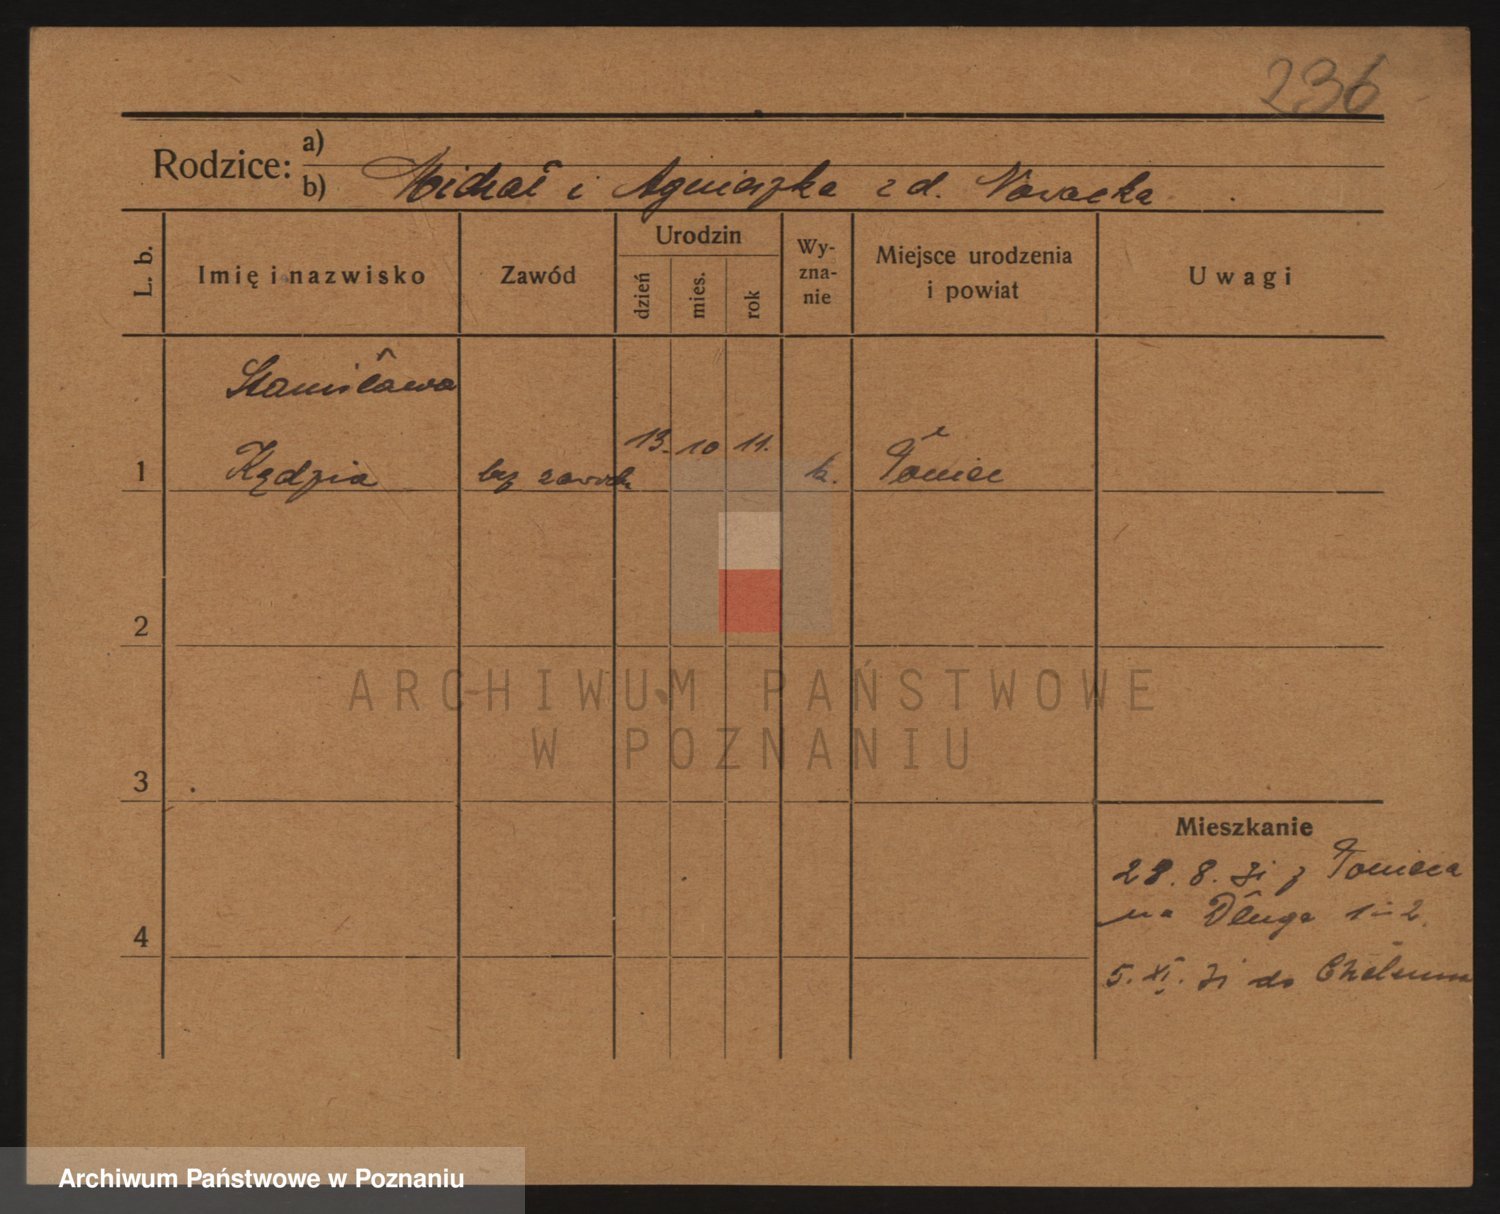 236
Rodzice: a)
b) Michał i Agnieszka z d. Nowacka
L. b. Imię i nazwisko Zawód Urodzin dzień mies. rok Wy-zna-nie Miejsce urodzenia i powiat Uwagi
Stanisława
1 Kędzia bez zawodu 13. 10 11. k. Tomice
2
3
4
Mieszkanie
28. 8. 31 z Tomica
na Długa 1-2.
5. XI. 31 do
ARCHIWUM PAŃSTWOWE
W POZNANIU
Archiwum Państwowe w Poznaniu